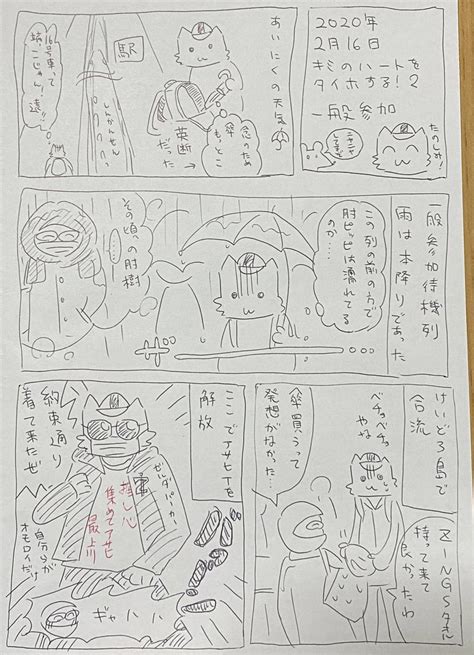 2020年
2月16日
キミのハートを
タイホちる!2
一般参加
たのしみ!
あいにくの天気
駅
念のため
もっとこ
傘
英断
だった
しんかんせん
16号車って
端っこじゃん!
遠!!
一般参加待機列
雨は本降りであった
この列の前の方で
肘ピッピは濡れてる
のか…
その頃の肘樹
……
けいどろ島で
合流
ベチョベチョ
やな
ZINGSタオル
持って来て
良かったわ
傘買うって
発想がなかった…
ここでアサヒィを
解放
ゼルダパーカー
推し心
集めてアサヒ
最上川
約束通り
着て来たぜ
自分が
オモロイだけ
ギャハハ